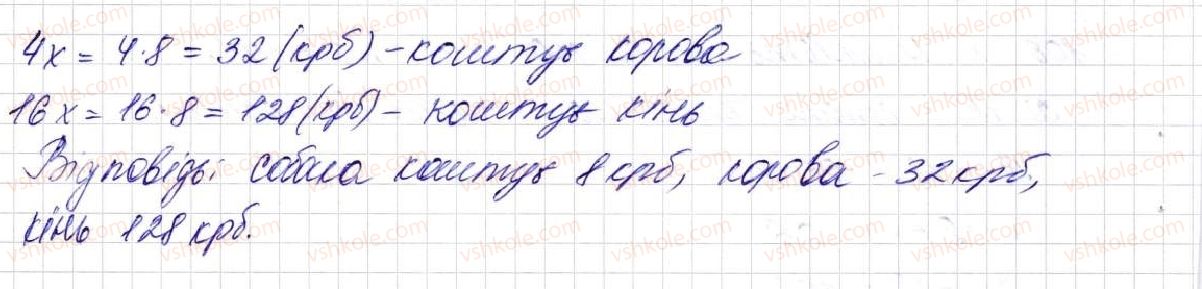 4x = 4·8 = 32 (крб) - коштує корова
16x = 16·8 = 128 (крб) - коштує кінь
Відповідь: собака коштує 8 крб, корова - 32 крб,
кінь 128 крб.